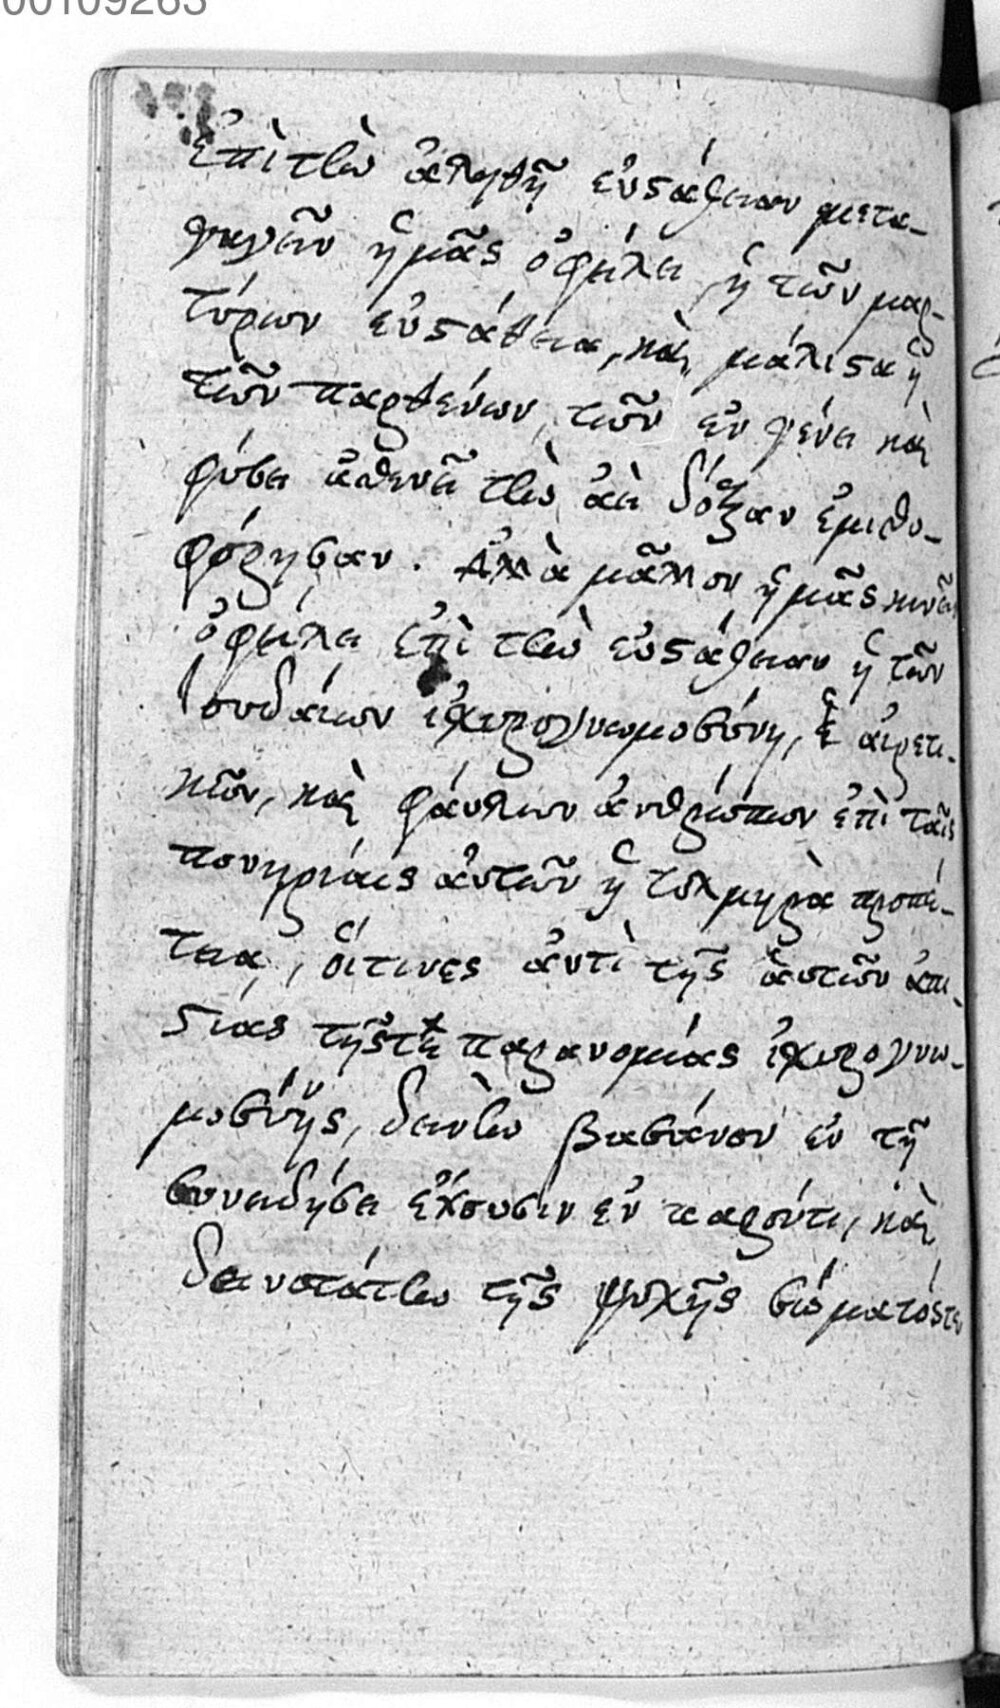 00109263
Ἐπὶ τὴν ἀληθῆ εὐστάθειαν μετα-
γαγεῖν ἡμᾶς ὀφείλει ἡ τῶν μαρ-
τύρων εὐστάθεια, καὶ μάλιστα ἡ
τῶν παρθένων, τῶν ἐν γένει καὶ
φύσει ἀσθενεῖ τὴν ἀεὶ δόξαν ἐμισθο-
φόρησαν. Ἀλλὰ μᾶλλον ἡμᾶς κινεῖν
ὀφείλει ἐπὶ τὴν εὐστάθειαν ἡ τῶν
Ἰουδαίων ἰσχυρογνωμοσύνη, ἢ αἱρετι-
κῶν, καὶ φαύλων ἀνθρώπων ἐπὶ ταῖς
πονηρίαις αὐτῶν ἡ τολμηρὰ προπέ-
τεια, οἵτινες ἀντὶ τῆς ἑαυτῶν ἀπι-
στίας τῆς τε παρανομίας ἰσχυρογνω-
μοσύνης, δεινὴν βάσανον ἐν τῇ
συνειδήσει ἔχουσιν ἐν παρόντι, καὶ
δεινοτάτην τῆς ψυχῆς σώματός τε